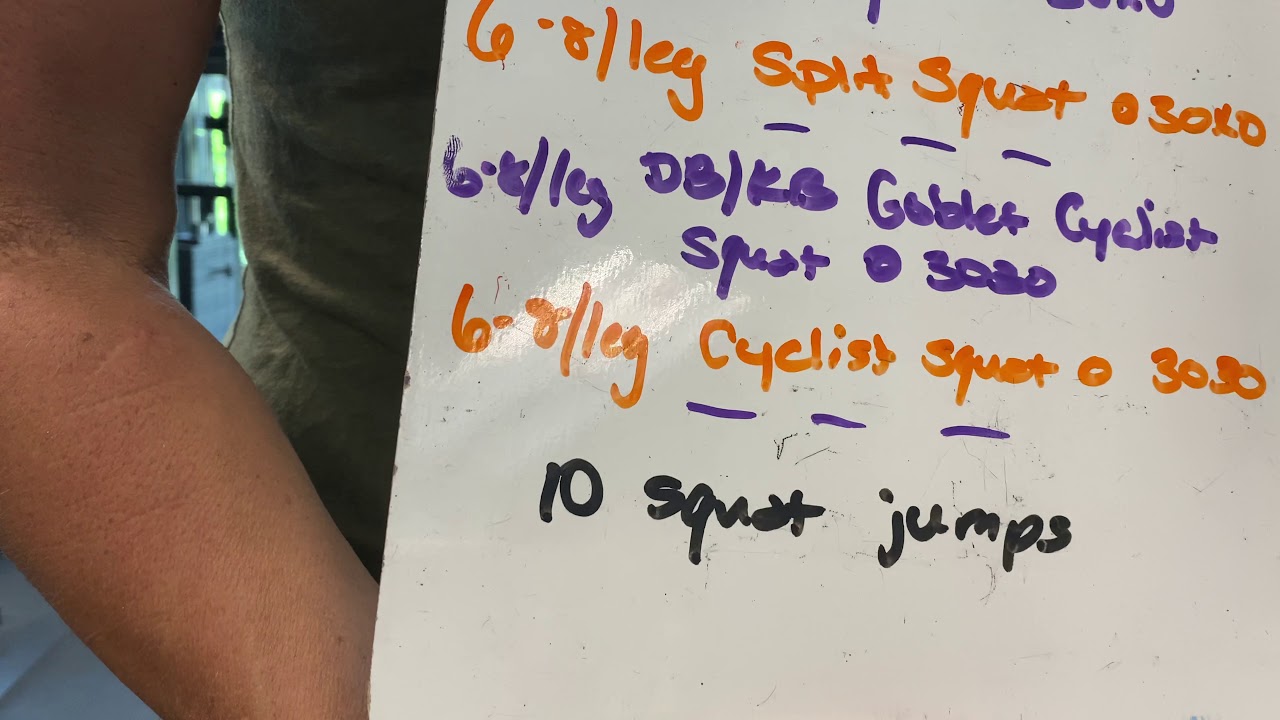 6-8/leg Split Squat @ 30X0
6-8/leg DB/KB Goblet Cyclist
Squat @ 3030
6-8/leg Cyclist Squat @ 3030
10 squat jumps